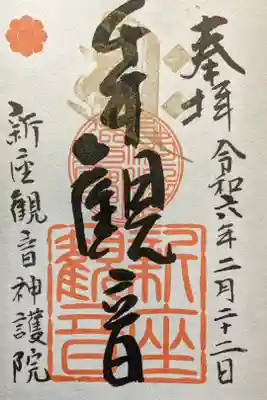 奉拝
令和六年二月二十二日
千手觀音
新座
觀音
新座観音神護院